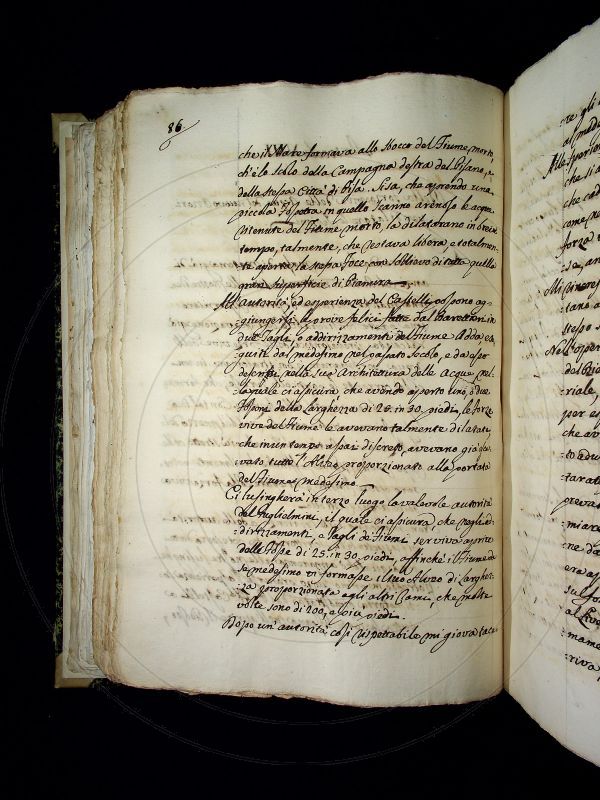 86.
che il Mare formava allo sbocco del Fiume morto,
ch'è lo scolo della Campagna destra del Pisano, e
della stessa Città di Pisa. Si sa, che aprendo una
piccola Fossetta in quello scanno arenoso le acque
ritenute del Fiume morto, la dilatarono in breve
tempo, talmente, che restava libera, e totalmen-
te aperta la stessa Foce con sollievo di tutta quella
gran superficie di Pianura.
All'autorità, ed esperienza del Castelli, possono ag-
giungersi le prove felici fatte dal Barattieri in
due Tagli, o addirizzamenti del Fiume Adda es-
eguiti dal medesimo nel passato secolo, e da esso
descritti nella sua Architettura delle Acque, nel-
la quale ci assicura, che avendo aperto uno, o due
Fossoni della larghezza di 20. in 30. piedi, le forze
vive del Fiume le avevano talmente dilatati,
che in un tempo assai discreto, avevano già sca-
vato tutto l'Alveo proporzionato alla portata
del Fiume medesimo.
Ci lusingherà in terzo luogo la valevole autorità
del Guglielmini, il quale ci assicura, che negli ad-
dirizzamenti, e Tagli de' Fiumi serviva aprire
delle Fosse di 25. in 30. piedi, affinchè il Fiume da
se medesimo vi formasse il suo Alveo di larghez-
za proporzionata agli altri rami, che molte
volte sono di 200, e più piedi.
Dopo un'autorità così rispettabile mi giova tace-